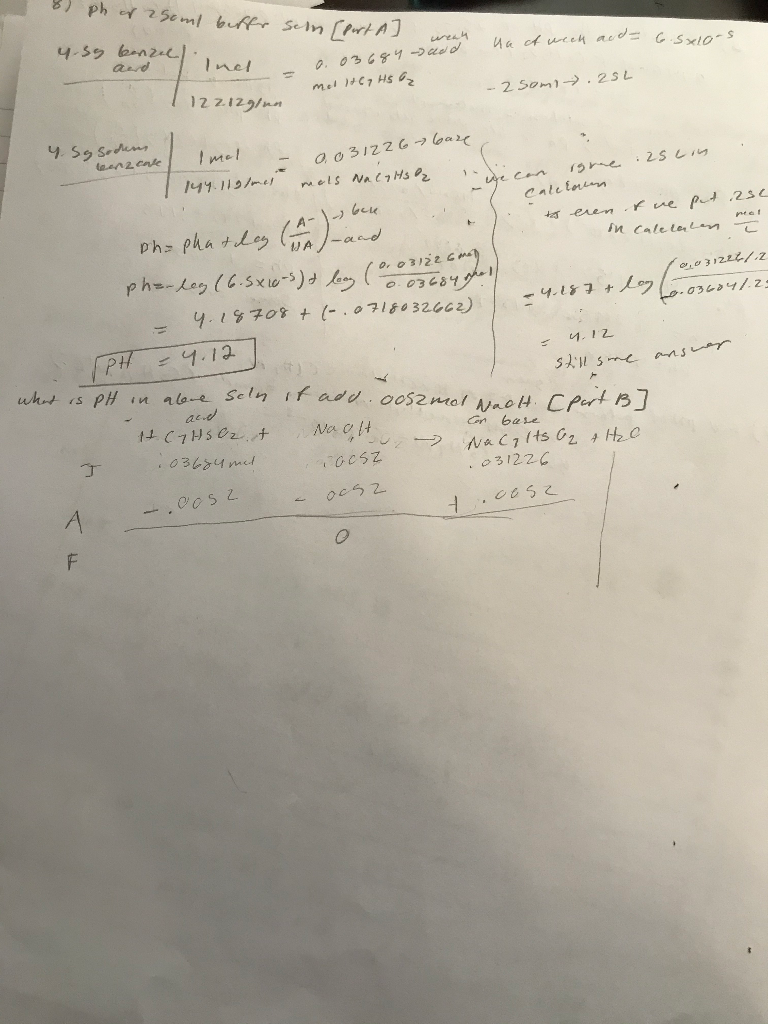 8) ph of 250ml buffer soln [Part A]
weak
4.5g benzoic acid | 1 mol = 0.03684 → acid
122.12g/mol mol HC7H5O2
Ka of weak acid = 6.5x10-5
- 250ml → .25L
4.5g sodium benzoate | 1 mol = 0.031226 → base
144.11g/mol mols NaC7H5O2
we can ignore .25L in
calculation
even if we put .25L
in calculation mol/L
ph = pka + log (A-/HA) → base - acid
ph = -log(6.5x10-5) + log (0.031226 mol/0.03684 mol)
= 4.18708 + (-.0718032662)
PH = 4.12
= 4.187 + log (0.031226/.2 / 0.03684/.25
= 4.12
still same answer
what is PH in above soln if add .0052mol NaOH. [Part B]
acid con base
HC7H5O2 + NaOH → NaC7H5O2 + H2O
I .03684mol .0052 .031226
A -.0052 -.0052 +.0052
F 0